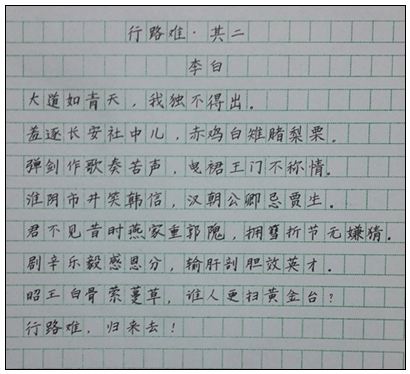 行路难·其二
李白
大道如青天，我独不得出。
羞逐长安社中儿，赤鸡白雉赌梨栗。
弹剑作歌奏苦声，曳裾王门不称情。
淮阴市井笑韩信，汉朝公卿忌贾生。
君不见昔时燕家重郭隗，拥篲折节无嫌猜。
剧辛乐毅感恩分，输肝剖胆效英才。
昭王白骨萦蔓草，谁人更扫黄金台？
行路难，归来去！